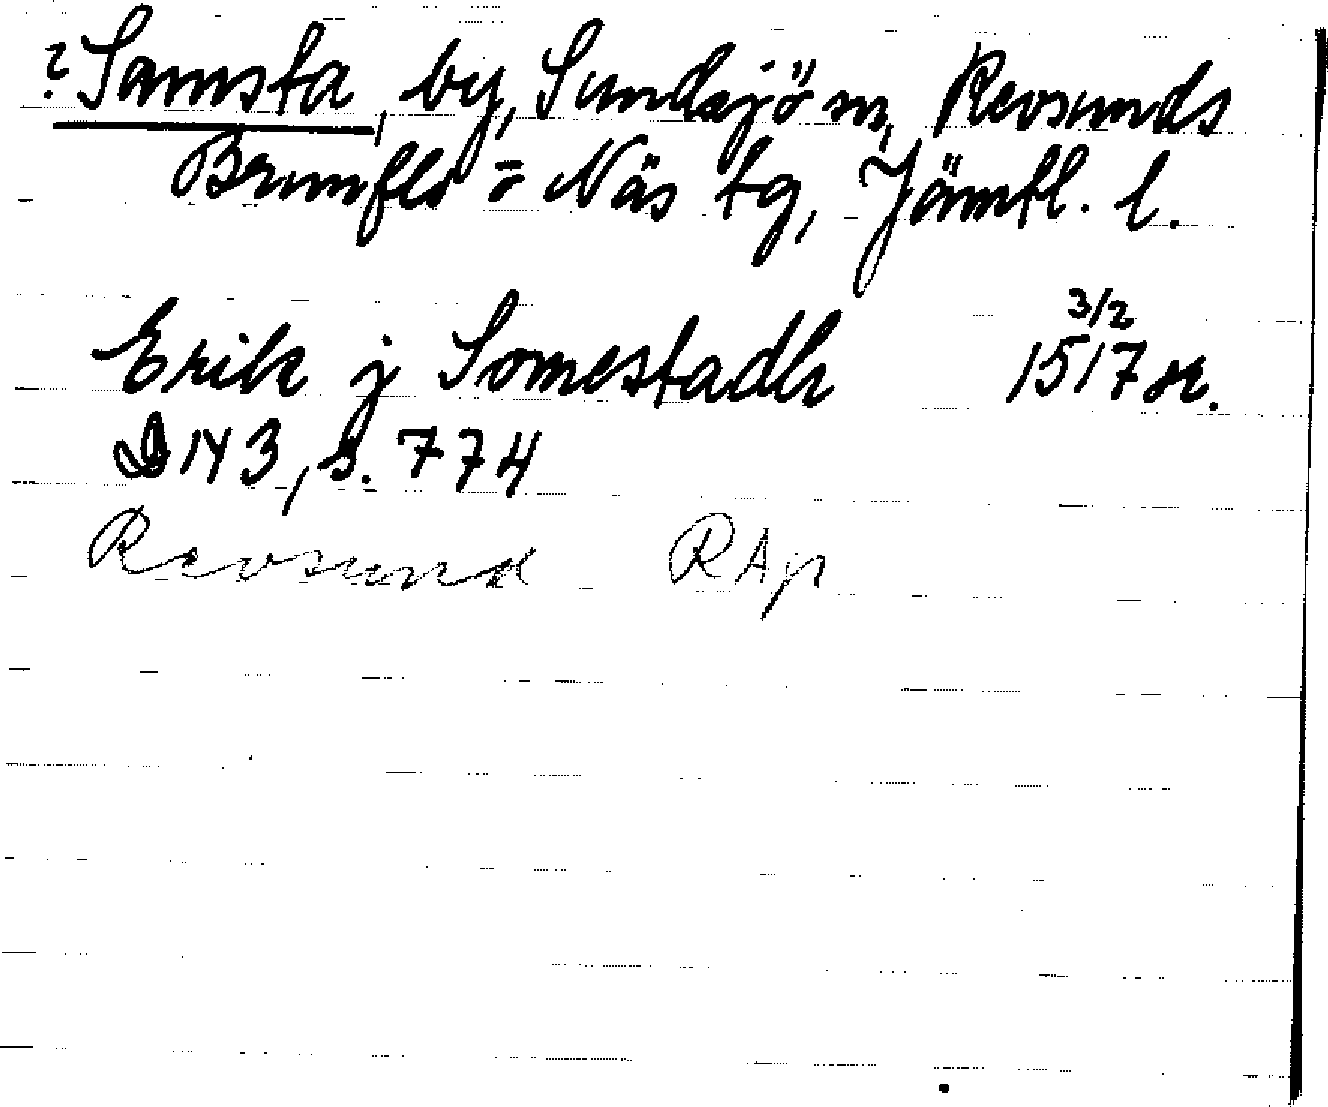 ? Samsta, by, Sundsjö sn, Revsunds
Brunflo o Näs tg, Jämtl. l.
Erik j Somestadh 3/2 1517 or.
D 143, s. 774
Revsund RAp